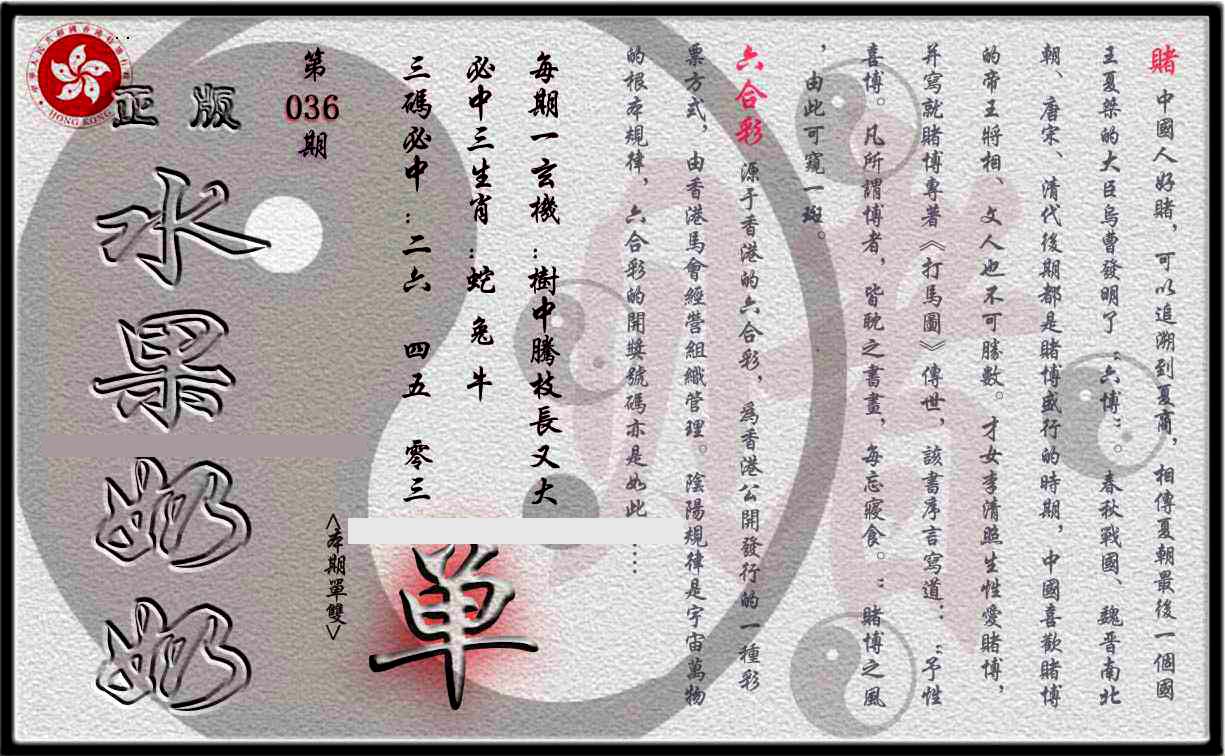 賭 中國人好賭，可以追溯到夏商，相傳夏朝最後一個國
王夏桀的大臣烏曹發明了“六博” 春秋戰國、魏晋南北
朝、唐宋、清代後期都是賭博盛行的時期，中國喜歡賭博
的帝王將相、文人也不可勝數。才女李清照生性愛賭博，
并寫就賭博專著《打馬圖》傳世，該書序言寫道：“予性
喜博。凡所謂博者，皆耽之書晝，每忘寢食。”賭博之風
，由此可窺一斑。
六合彩 源于香港的六合彩，為香港公開發行的一種彩
票方式，由香港馬會經營組織管理。陰陽規律是宇宙萬物
的根本規律，六合彩的開獎號碼亦是如此……
每期一玄機：樹中騰枝長又大
必中三生肖：蛇 兔 牛
三碼必中：二六 四五 零三
<本期單雙>
單
第
036
期
正版
水果奶奶
HONG KONG